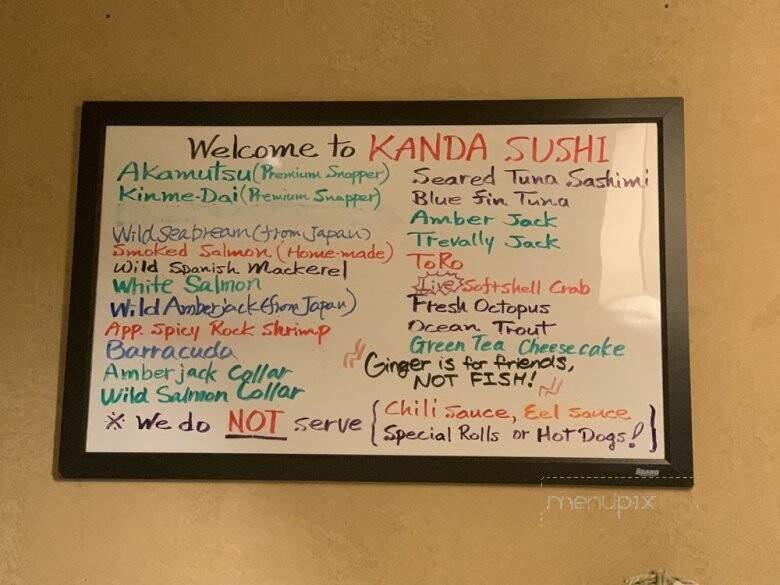 Welcome to KANDA SUSHI
Akamutsu (Premium Snapper)
Kinme-Dai (Premium Snapper)
Wild Seabream (from Japan)
Smoked Salmon (Home-made)
Wild Spanish Mackerel
White Salmon
Wild Amberjack (from Japan)
App. Spicy Rock Shrimp
Barracuda
Amberjack Collar
Wild Salmon Collar
Seared Tuna Sashimi
Blue fin Tuna
Amber Jack
Trevally Jack
ToRo
Live Softshell Crab
Fresh Octopus
Ocean Trout
Green Tea Cheesecake
Ginger is for friends,
NOT FISH!
※ We do NOT serve { Chili Sauce, Eel sauce
Special Rolls or Hot Dogs! }
BOARD
menupix